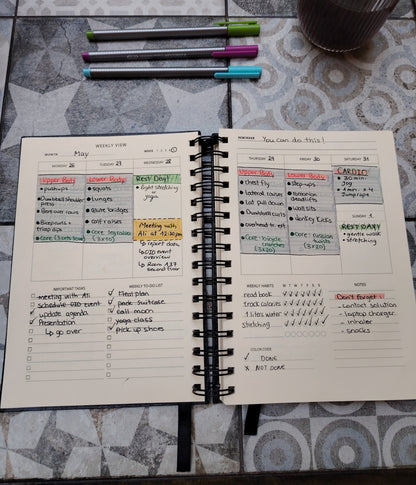 WEEKLY VIEW
MONTH May
WEEK 1 2 3 4 5
MONDAY 26
Upper Body
pushups
Dumbbell shoulder press
Bent over rows
Biceps curls + tricep dips
TUESDAY 27
Lower Body
squats
lunges
glute bridges
calf raises
Core: leg raise
(3x15)
WEDNESDAY 28
REST DAY!
light stretching or yoga
Meeting with
Ali at 12:30 pm
↳ report data
↳ overview
↳ Room A37
second floor
IMPORTANT TASKS
meeting with Ali
schedule
update agenda
Presentation
↳ go over
WEEKLY TO-DO LIST
Meal plan
pack suitcase
call mom
yoga class
Pick up shoes
REMINDER You can do this!
THURSDAY 29
Upper Body
chest fly
lateral raises
Lat pull down
Dumbbell curls
overhead tri. ext
Core: bicycle
crunches
(3x20)
FRIDAY 30
Lower Body
Step-ups
Romanian deadlifts
Wall sits
Donkey kicks
Core: russian
twists
(3x20)
SATURDAY 31
CARDIO
30 min.
Jog
Jumprope
SUNDAY 1
REST DAY!
gentle walk
stretching
WEEKLY HABITS M T W T F S S
read book
track calories
1 liter water
stretching
NOTES
Don't forget:
- contact solution
- laptop charger
- inhaler
- snacks
COLOR CODE
✓ DONE
x NOT DONE